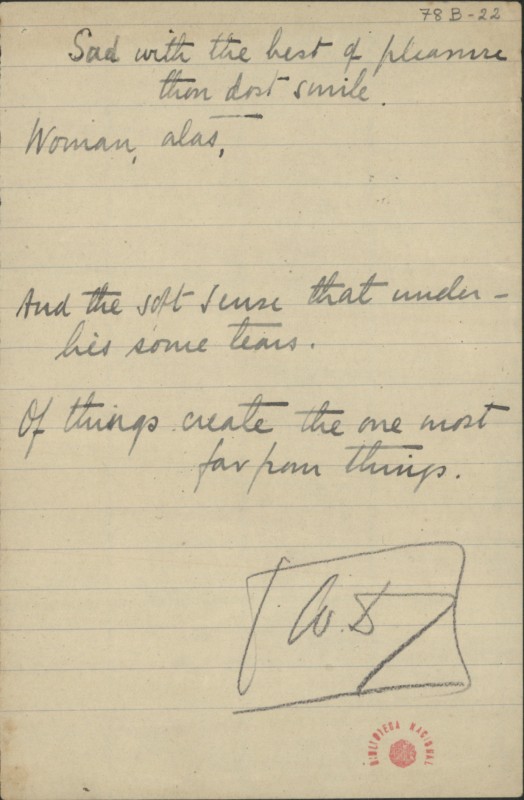 78 B-22
Sad with the best of pleasure
thou dost smile.
Woman, alas,
And the soft sense that under-
lies some tears.
Of things create the one most
far from things.
BIBLIOTECA NACIONAL